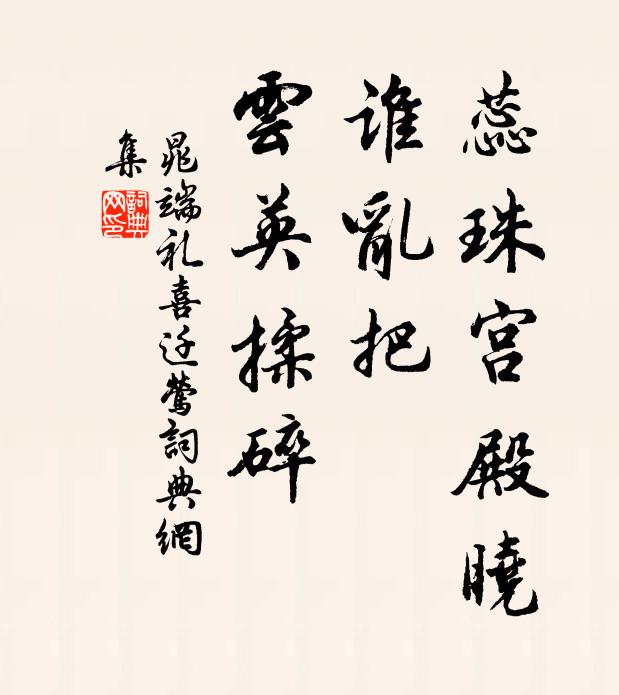 蕊珠宫殿曉
誰亂把
雲英揉碎
晁端礼喜迁鶯詞典網
集
詞典网印